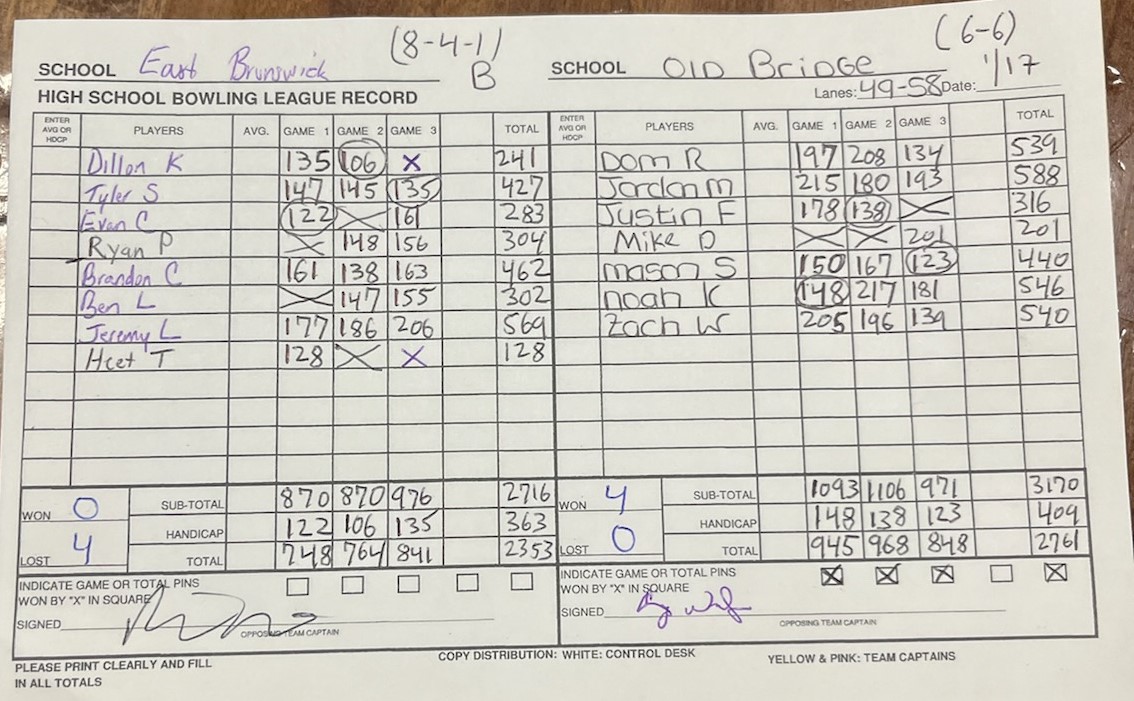 (8-4-1) (6-6)
SCHOOL East Brunswick B SCHOOL OlD BriDge
HIGH SCHOOL BOWLING LEAGUE RECORD Lanes: 49-58 Date: 1/17
ENTER AVG OR HDCP PLAYERS AVG. GAME 1 GAME 2 GAME 3 TOTAL ENTER AVG OR HDCP PLAYERS AVG. GAME 1 GAME 2 GAME 3 TOTAL
Dillon K 135 106 X 241 Dom R 197 208 134 539
Tyler S 147 145 135 427 Jordan M 215 180 193 588
Evan C 122 X 161 283 Justin F 178 138 X 316
Ryan P X 148 156 304 Mike D X X 201 201
Brandon C 161 138 163 462 mason S 150 167 123 440
Ben L X 147 155 302 noah K 148 217 181 546
Jeremy L 177 186 206 569 Zach W 205 196 139 540
Heet T 128 X X 128
WON 0 SUB-TOTAL 870 870 976 2716 WON 4 SUB-TOTAL 1093 1106 971 3170
HANDICAP 122 106 135 363 HANDICAP 148 138 123 409
LOST 4 TOTAL 748 764 841 2353 LOST 0 TOTAL 945 968 848 2761
INDICATE GAME OR TOTAL PINS INDICATE GAME OR TOTAL PINS X X X X
WON BY "X" IN SQUARE WON BY "X" IN SQUARE
SIGNED SIGNED
OPPOSING TEAM CAPTAIN OPPOSING TEAM CAPTAIN
PLEASE PRINT CLEARLY AND FILL COPY DISTRIBUTION: WHITE: CONTROL DESK YELLOW & PINK: TEAM CAPTAINS
IN ALL TOTALS